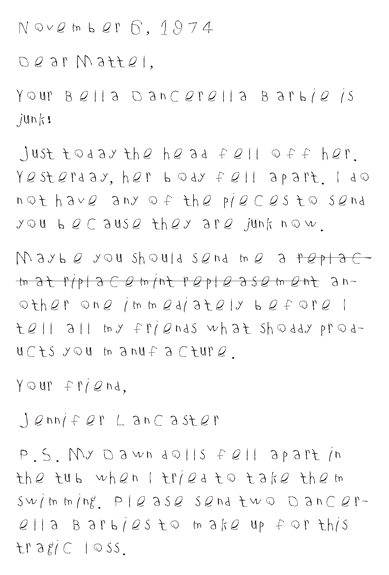 November 6, 1974
Dear Mattel,
Your Bella Dancerella Barbie is
junk!
Just today the head fell off her.
Yesterday, her body fell apart. I do
not have any of the pieces to send
you because they are junk now.
Maybe you should send me a replac-
mat riplacemint repleasement an-
other one immediately before I
tell all my friends what shoddy prod-
ucts you manufacture.
Your friend,
Jennifer Lancaster
P.S. My Dawn dolls fell apart in
the tub when I tried to take them
swimming. Please send two Dancer-
ella Barbies to make up for this
tragic loss.